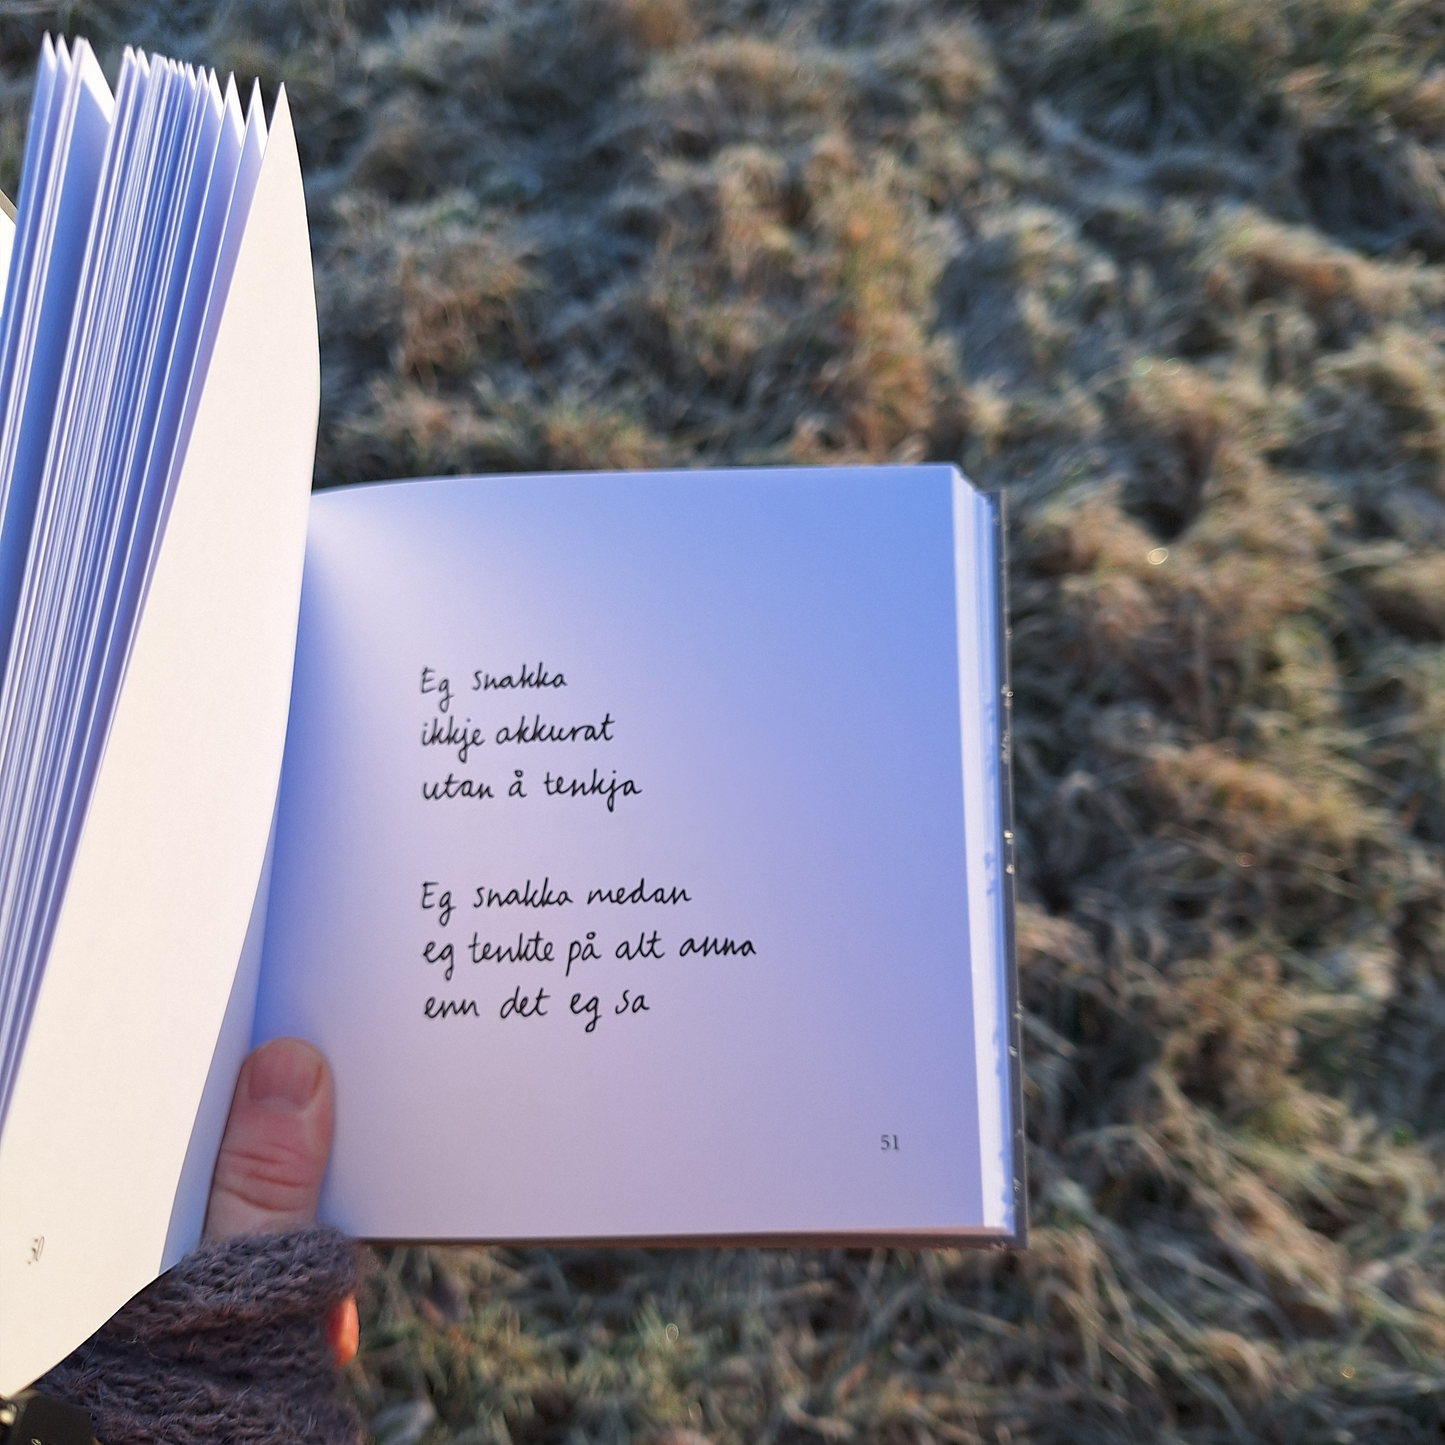 Eg snakka
ikkje akkurat
utan å tenkja
Eg snakka medan
eg tenkte på alt anna
enn det eg sa
51
50